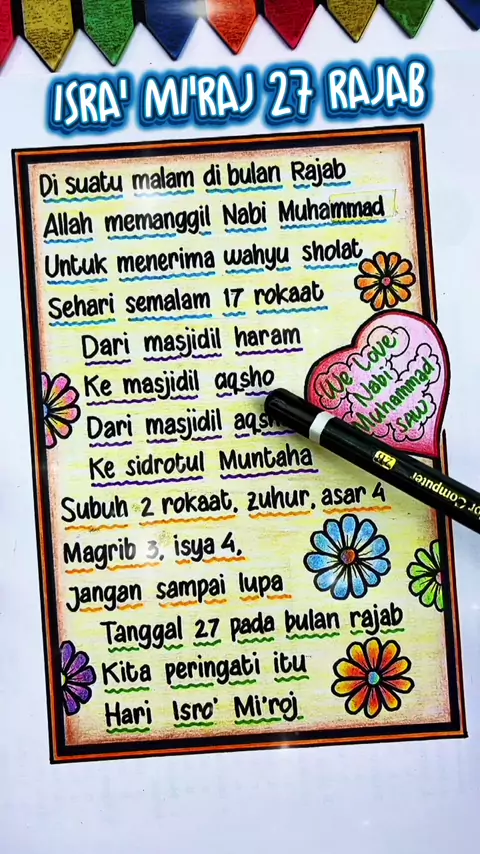 ISRA' MI'RAJ 27 RAJAB
Di suatu malam di bulan Rajab
Allah memanggil Nabi Muhammad
Untuk menerima wahyu sholat
Sehari semalam 17 rokaat
Dari masjidil haram
Ke masjidil aqsho
Dari masjidil aqsho
Ke sidrotul Muntaha
Subuh 2 rokaat, zuhur, asar 4
Magrib 3, isya 4,
jangan sampai lupa
Tanggal 27 pada bulan rajab
Kita peringati itu
Hari Isro' Mi'roj
We Love
Nabi
Muhammad
saw
2B
for Computer